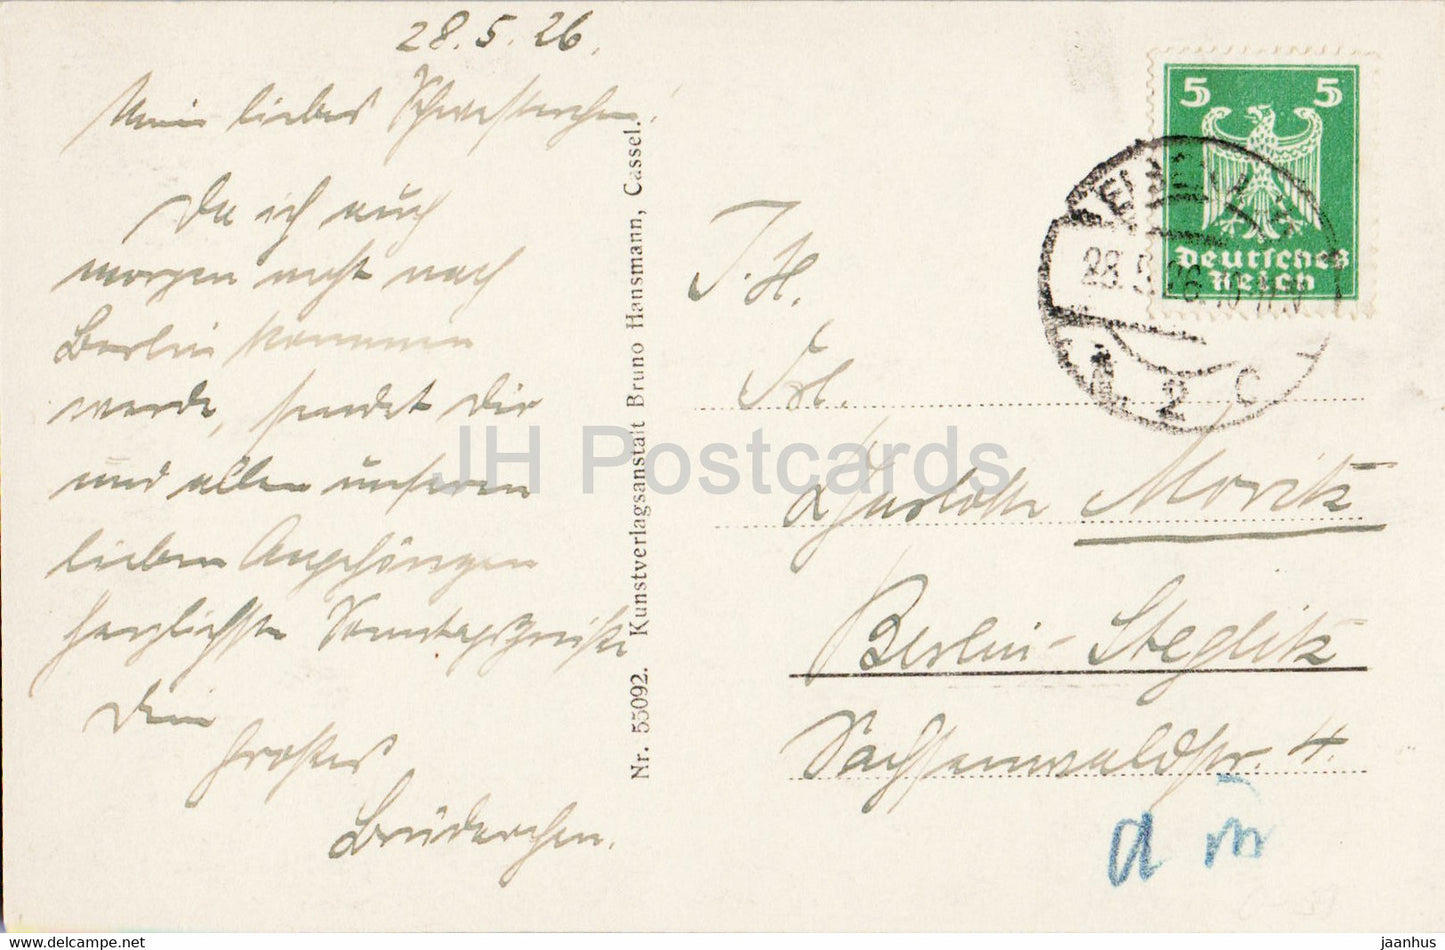 28.5.26.
Mein liebes Schwesterchen!
Da ich auch
morgen nicht nach
Berlin kommen
werde, sendet Dir
und allen unseren
lieben Angehörigen
herzlichste Sonntagsgrüße
Dein
großes
Brüderchen.
Nr. 55092. Kunstverlagsanstalt Bruno Hansmann, Cassel.
5 5
Deutsches
Reich
28.5.26.10
2 c
Frl.
Charlotte Moritz
Berlin-Steglitz
Sachsenwaldstr. 4.
JH Postcards
www.delcampe.net
jaanhus